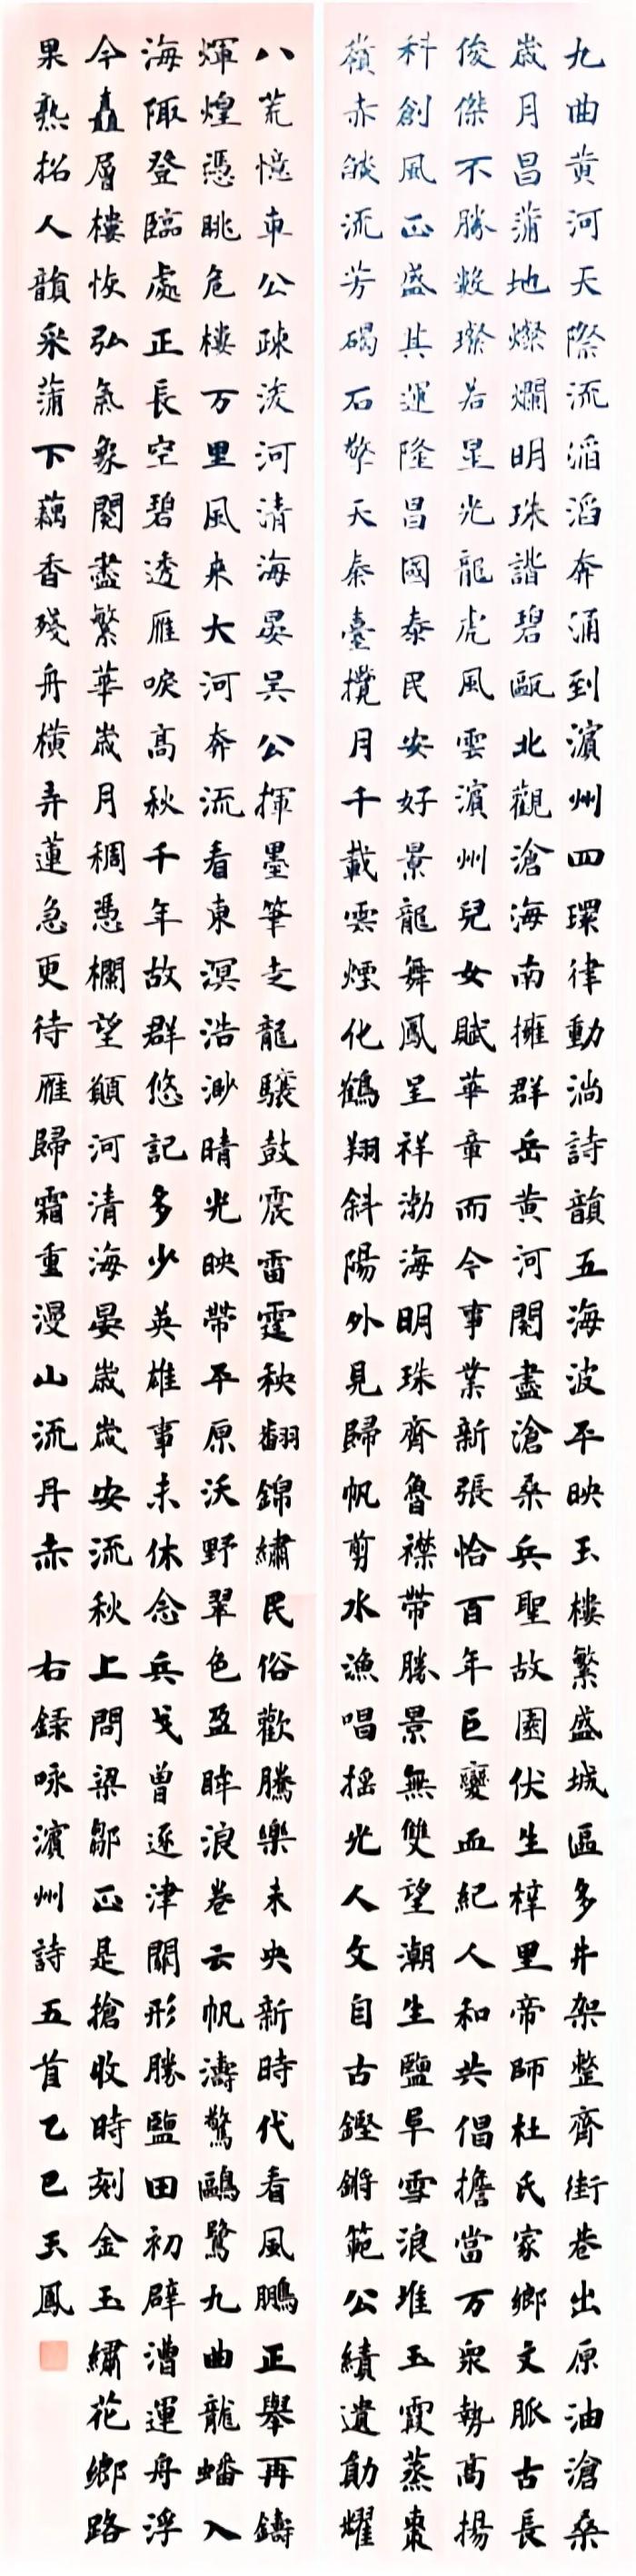 九曲黄河天際流滔滔奔涌到濱州四環律動淌詩韻五海波平映玉樓繁盛城區多井架整齊街巷出原油滄桑
歲月昌蒲地燦爛明珠諧碧甌北觀滄海南擁群岳黄河閱盡滄桑兵聖故園伏生梓里帝師杜氏家鄉文脈古長
俊傑不勝數璨若星光龍虎風雲濱州兒女賦華章而今事業新張恰百年巨變血紀人和共倡擔當万衆勢高揚
科創風正盛其運隆昌國泰民安好景龍舞鳳呈祥渤海明珠齊魯襟帶勝景無雙望潮生鹽阜雪浪堆玉霞蒸棗
嶺赤絨流芳碣石擎天秦臺攬月千載雲煙化鶴翔斜陽外見歸帆剪水漁唱摇光人文自古鏗鏘範公績遺勛耀
八荒憶車公疎浚河清海晏吴公揮墨筆走龍驤鼓震雷霆秧翻錦繡民俗歡騰樂未央新時代看風鵬正舉再鑄
輝煌憑眺危樓万里風来大河奔流看東溟浩渺晴光映帶平原沃野翠色盈眸浪卷云帆濤驚鷗鷺九曲龍蟠入
海陬登臨處正長空碧透雁唳高秋千年故群悠記多少英雄事未休念兵戈曾逐津關形勝鹽田初辟漕運舟浮
今矗層樓恢弘氣象閱盡繁華歲月稠憑欄望顧河清海晏歲歲安流秋上問梁鄒正是搶收時刻金玉繡花鄉路
果熟招人韻采蒲下藕香殘舟橫弄蓮急更待雁歸霜重漫山流丹赤
右録咏濱州詩五首乙巳天鳳